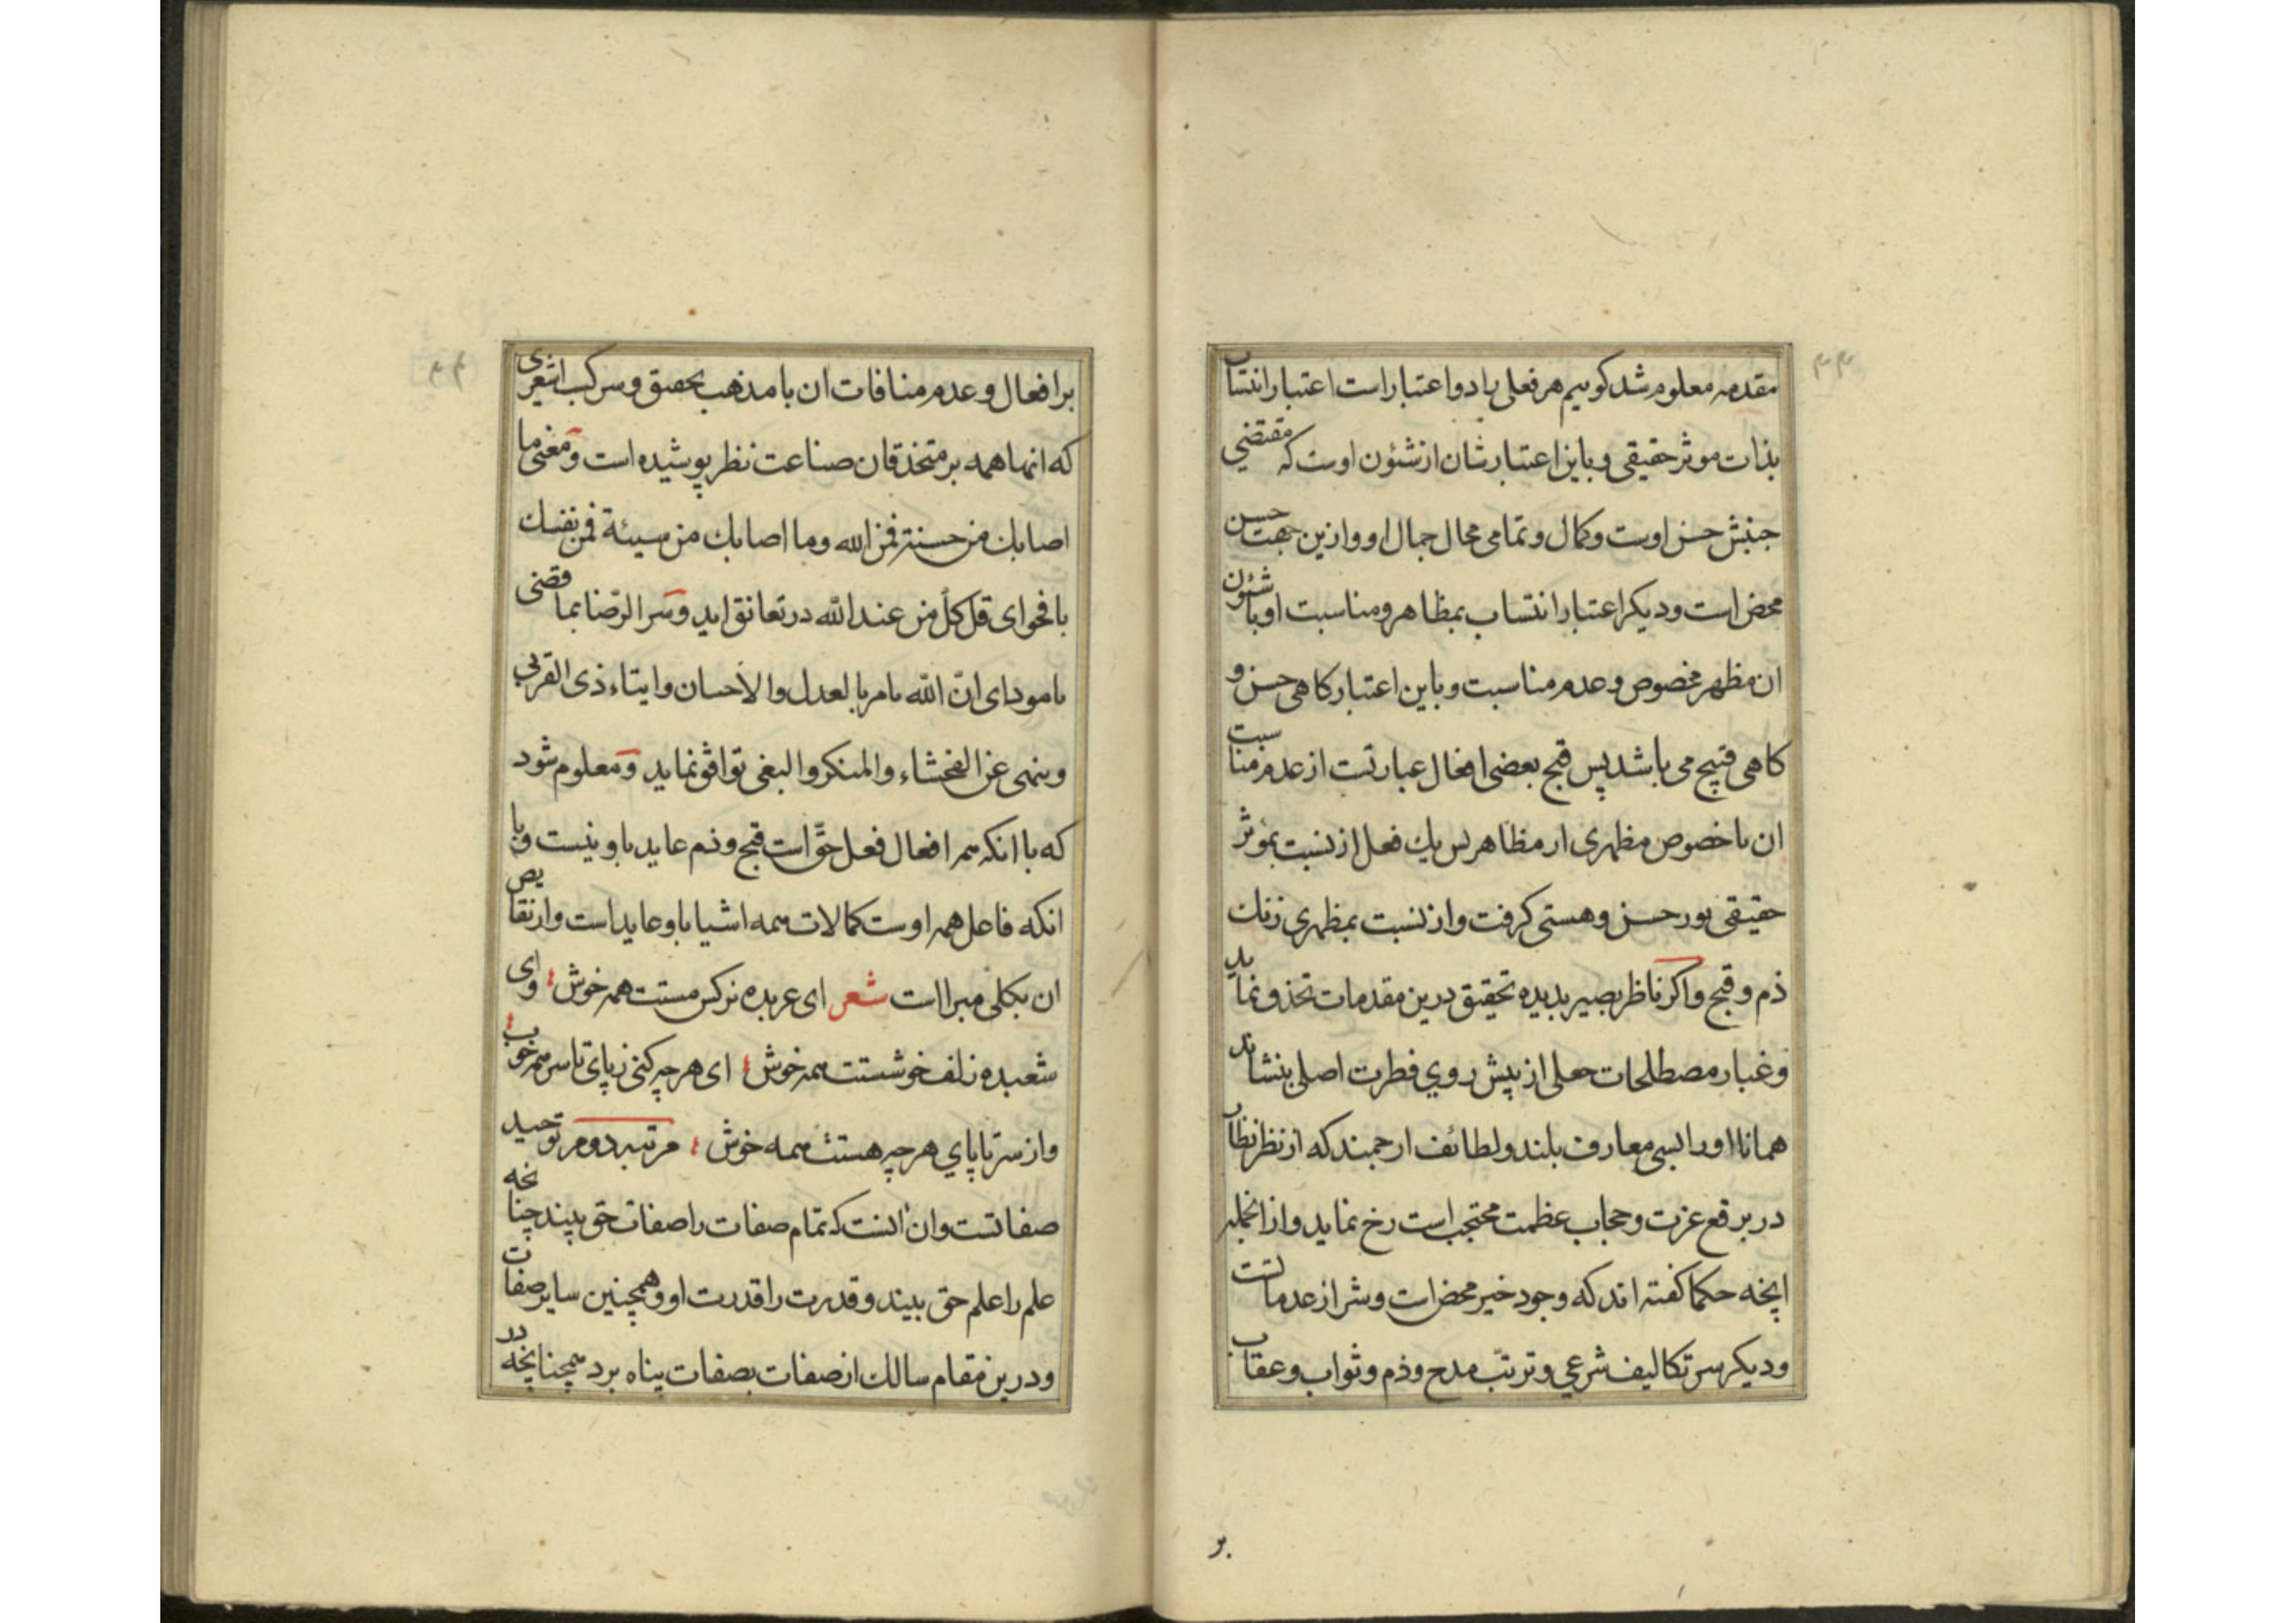 مقدمه معلوم شد کوییم هر فعلی را دو اعتبار است اعتبار انتساب
بذات موثر حقیقی و باین اعتبار شان از شئون اوست که مقتضی
جنبش حسن اوست و کمال و تمامی مجال جمال او و ازین جهت حسن
محض است و دیکر اعتبار انتساب بمظاهر و مناسبت او با شئون
ان مظهر مخصوص و عدم مناسبت و باین اعتبار کاهی حسن و
کاهی قبیح می باشد پس قبح بعضی افعال عبارتست از عدم مناسبت
ان با خصوص مظهری از مظاهر پس یک فعل از نسبت بمؤثر
حقیقی نور حسن و هستی کرفت و از نسبت بمظهری زنک
ذم و قبح و اکر ناظر بصیر بدیده تحقیق درین مقدمات تحذو نماید
و غبار مصطلحات جعلی از پیش روي فطرت اصلی بنشاند
همانا او را بسی معارف بلند و لطائف ارجمند که از نظر نظار
در برقع عزت و حجاب عظمت محتجب است رخ نماید و از انجمله
اینچه حکما کفته اند که وجود خیر محض است و شر از عدماتست
و دیکر سر تکالیف شرعی و ترتب مدح و ذم و ثواب و عقاب
بر
بر افعال و عدم منافات ان با مذهب تحقیق و سر کسب اشعری
که انها همه بر متحذقان صناعت نظر پوشیده است و معنی ما
اصابک من حسنة فمن الله وما اصابک من سیئة فمن نفسک
با فحوای قل کلّ من عند الله در تعانق اید و سر الرّضا بما قضی
با مودای انّ الله یامر بالعدل والاحسان وایتاء ذی القربی
وینهی عن الفحشاء والمنکر والبغی توافق نماید و معلوم شود
که با انکه همه افعال فعل حقّ است قبح و ذم عاید باو نیست و با
انکه فاعل همه اوست کمالات همه اشیا باو عاید است و از نقایص
ان بکلی مبرا است شعر ای عربده نرکس مستت همه خوش وای
شعبده زلف خوشستت همه خوش ای هرچه کنی ز پای تا سر همه خوب
واز سر تا پاي هرچه هستت همه خوش مرتبه دوم توحید
صفاتست وان انست که تمام صفات را صفات حق بیند چنانچه
علم را علم حق بیند و قدرت را قدرت او و همچنین سایر صفات
و درین مقام سالک از صفات بصفات پناه برد همچنانچه در